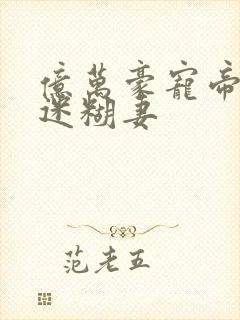 億萬豪寵帝
迷糊妻
范老五